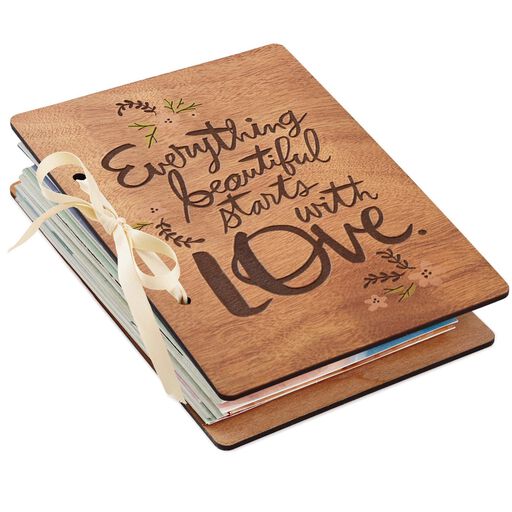 Everything
beautiful
starts
with
LOVE.